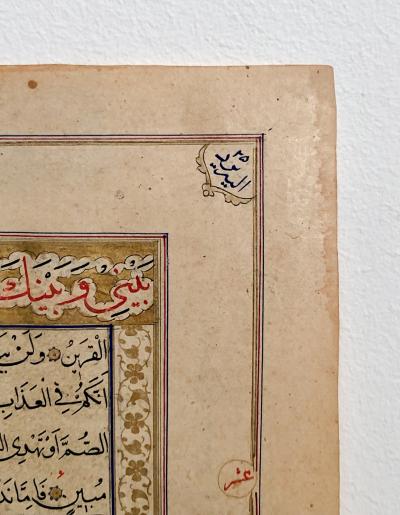 اليه يرد ٢٥
بَيْنِي وَبَيْنَكَ
الْقَرِينُ وَلَنْ
اَنَّكُمْ فِي الْعَذَابِ
الصُّمَّ اَوْ تَهْدِي
مُبِينٍ فَاِمَّا
عشر